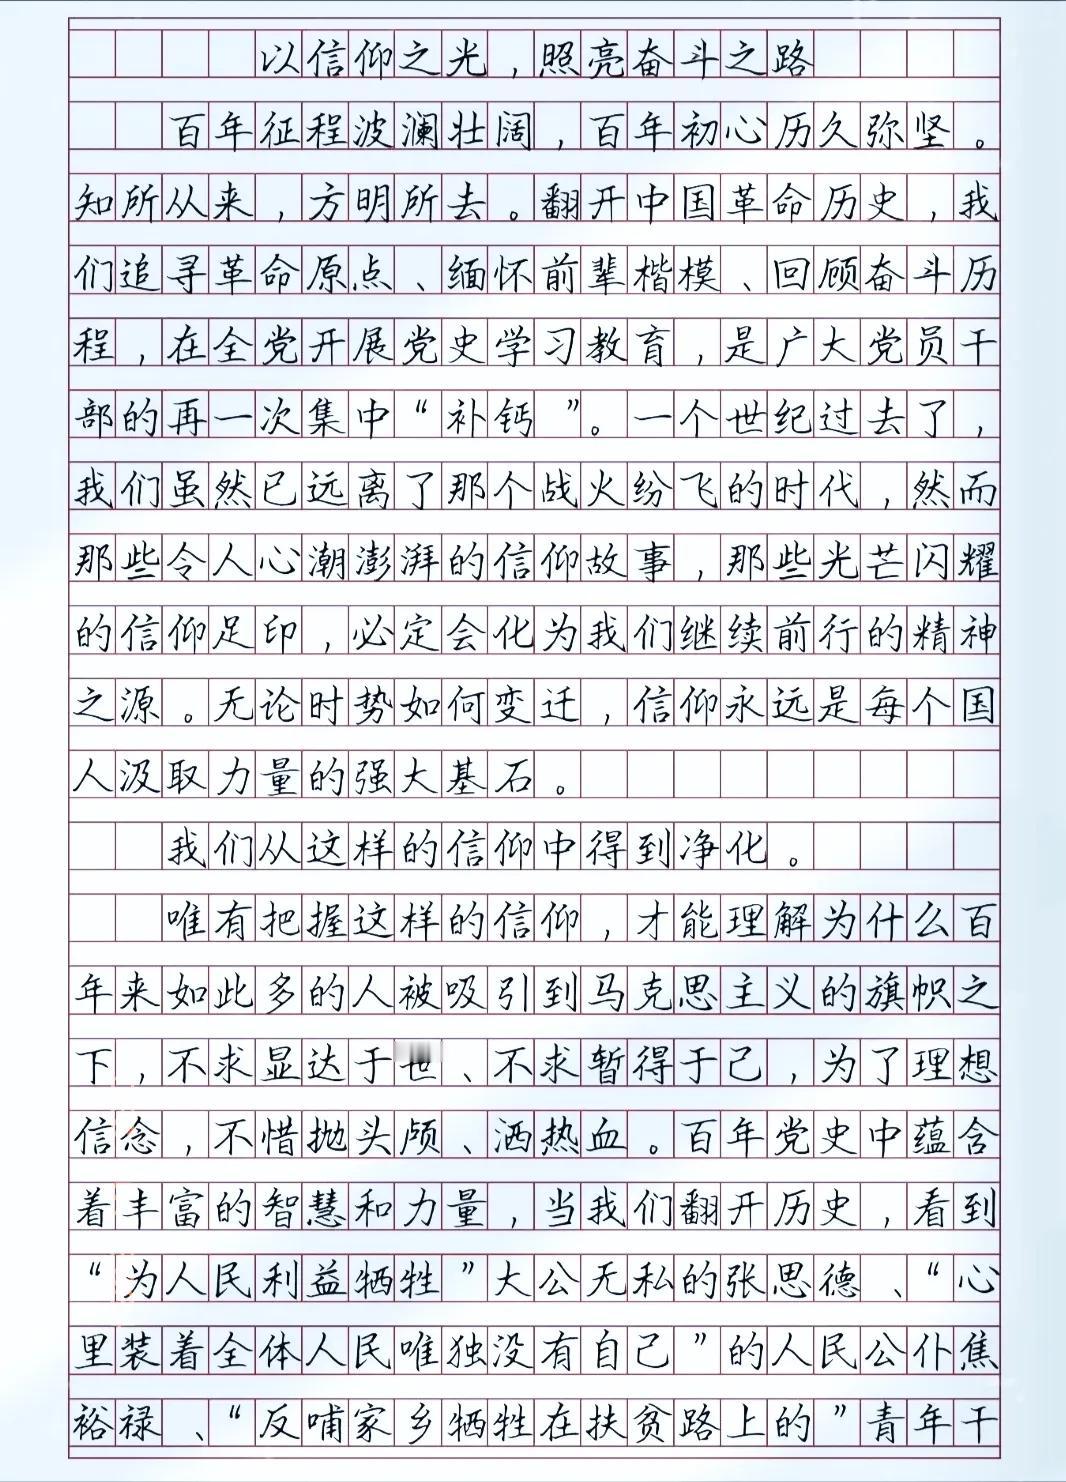 以信仰之光，照亮奋斗之路
百年征程波澜壮阔，百年初心历久弥坚。
知所从来，方明所去。翻开中国革命历史，我
们追寻革命原点、缅怀前辈楷模、回顾奋斗历
程，在全党开展党史学习教育，是广大党员干
部的再一次集中“补钙”。一个世纪过去了，
我们虽然已远离了那个战火纷飞的时代，然而
那些令人心潮澎湃的信仰故事，那些光芒闪耀
的信仰足印，必定会化为我们继续前行的精神
之源。无论时势如何变迁，信仰永远是每个国
人汲取力量的强大基石。
我们从这样的信仰中得到净化。
唯有把握这样的信仰，才能理解为什么百
年来如此多的人被吸引到马克思主义的旗帜之
下，不求显达于世、不求暂得于己，为了理想
信念，不惜抛头颅、洒热血。百年党史中蕴含
着丰富的智慧和力量，当我们翻开历史，看到
“为人民利益牺牲”大公无私的张思德、“心
里装着全体人民唯独没有自己”的人民公仆焦
裕禄、“反哺家乡牺牲在扶贫路上的”青年干